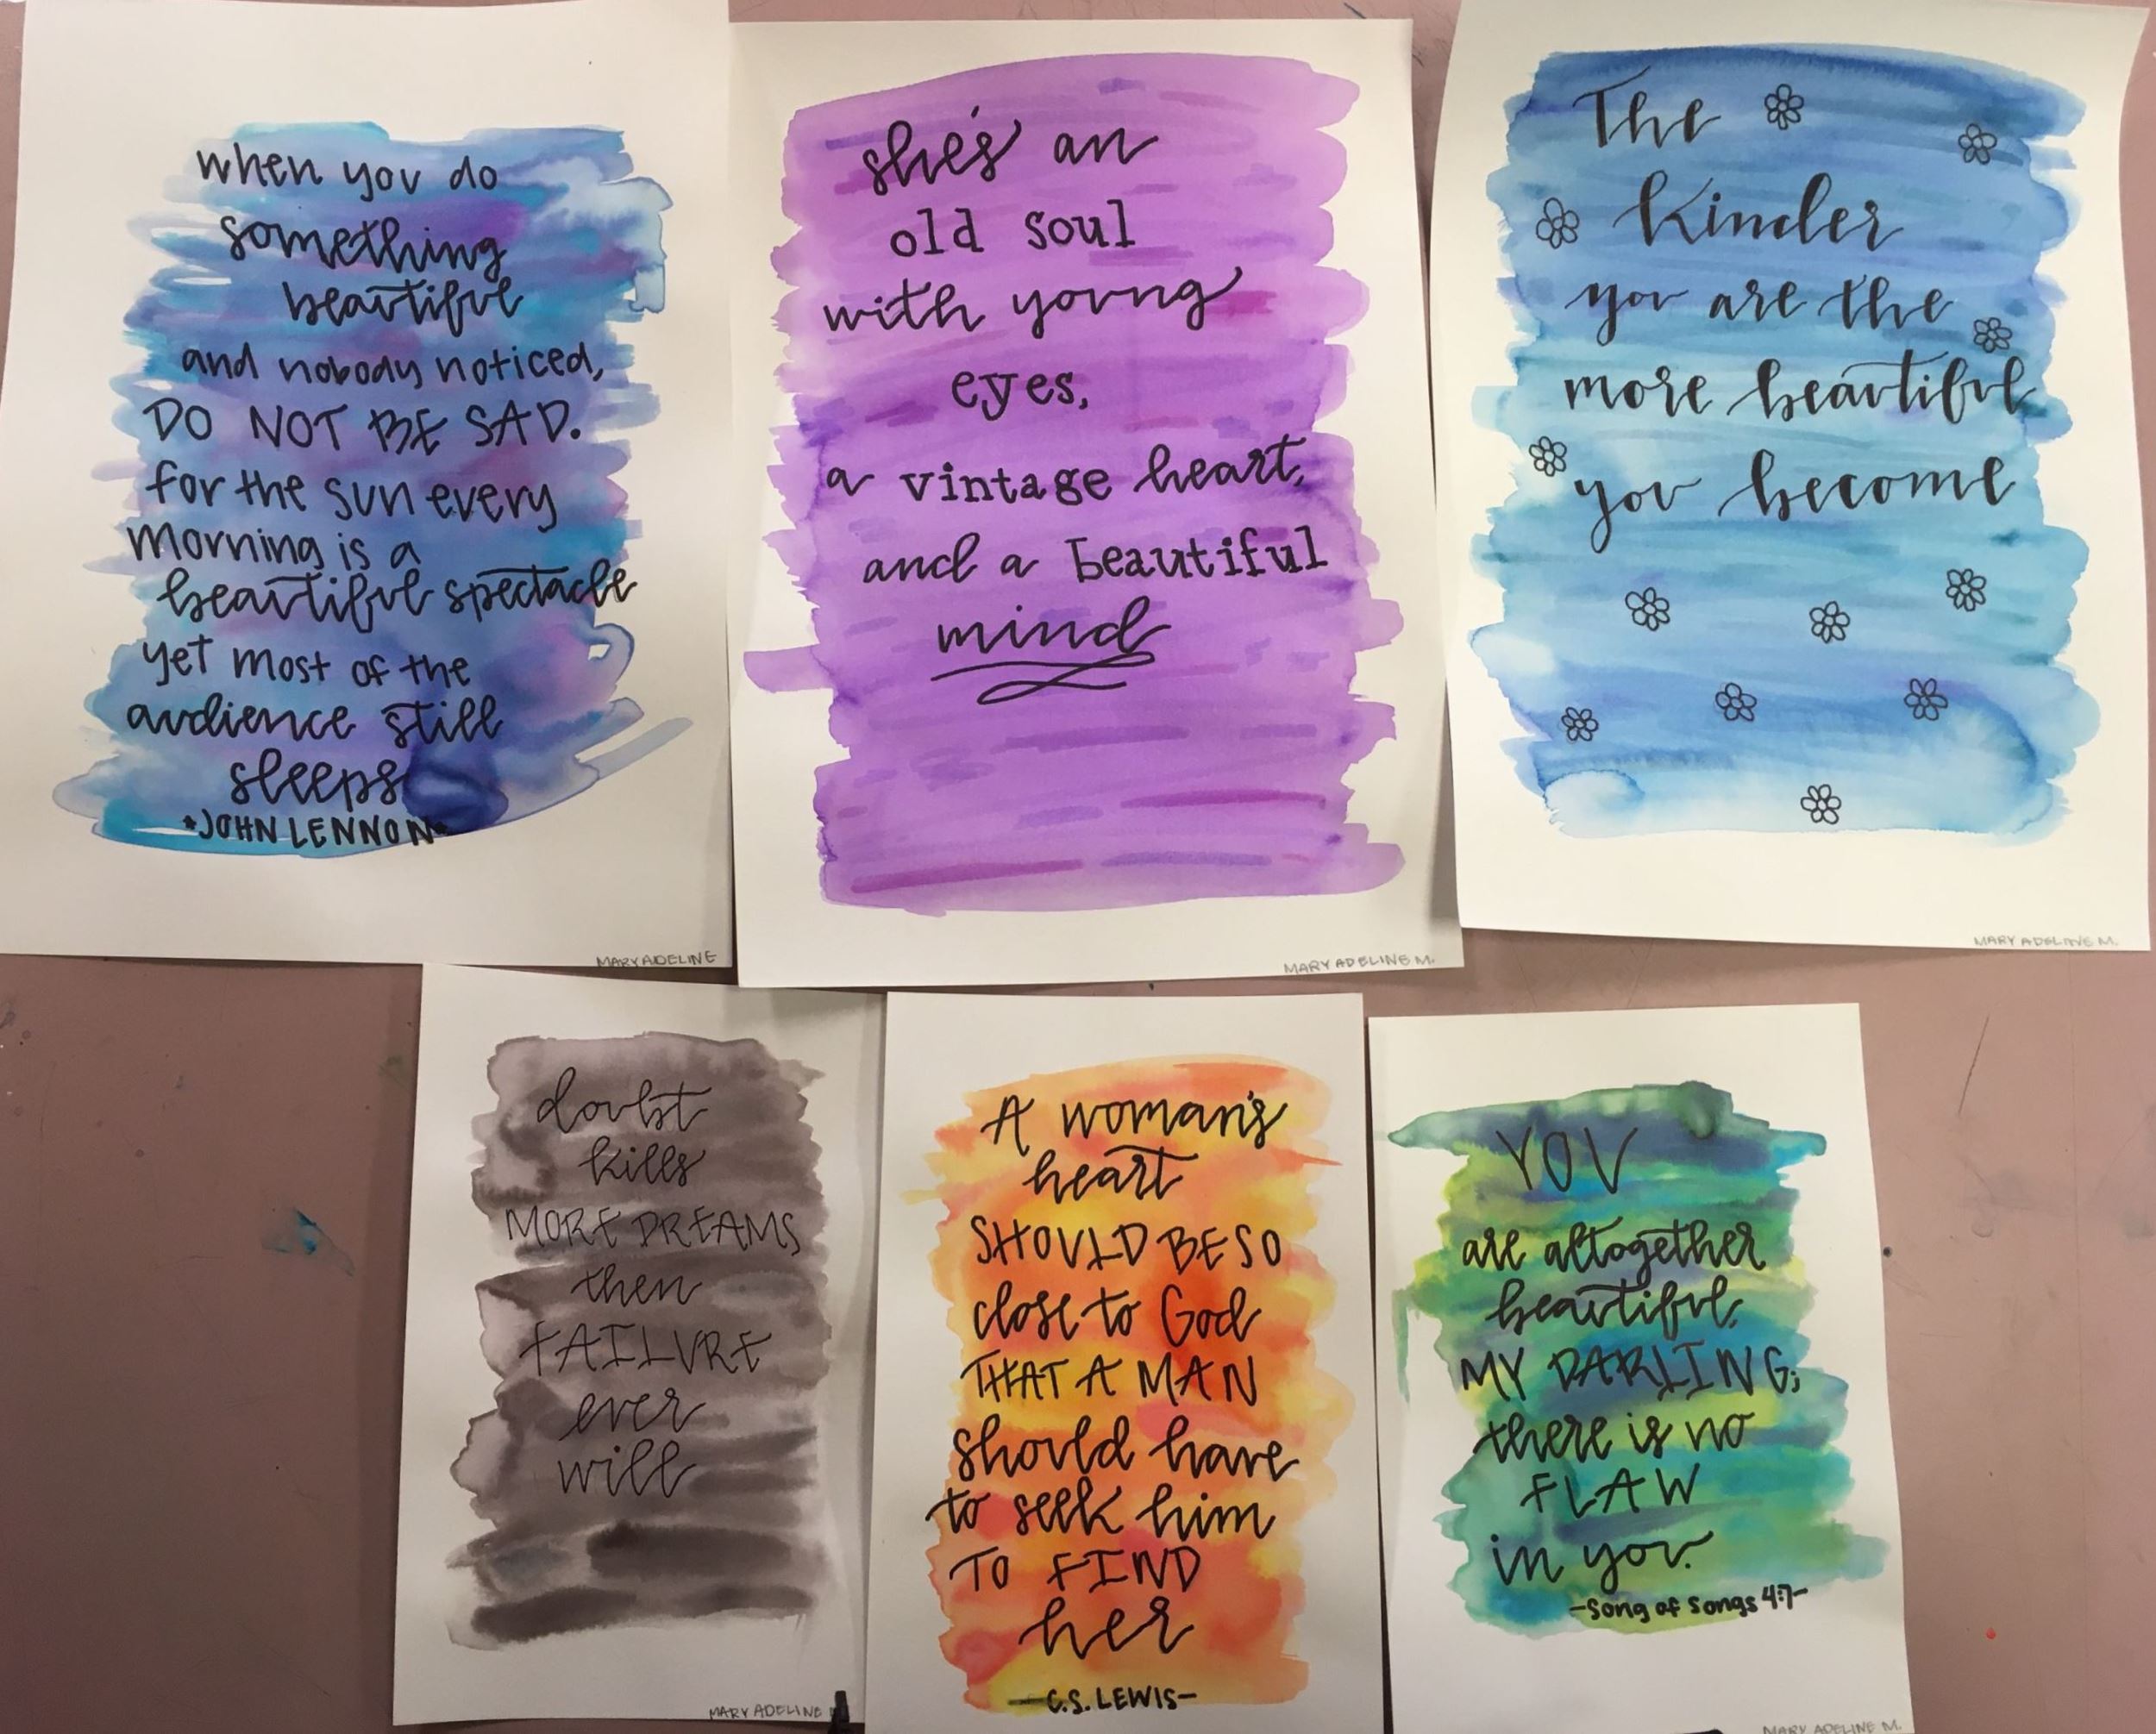 when you do
something
beautiful
and nobody noticed,
DO NOT BE SAD.
for the sun every
morning is a
beautiful spectacle
yet most of the
audience still
sleeps
*JOHN LENNON*
MARY ADELINE
she's an
old soul
with young
eyes,
a vintage heart,
and a beautiful
mind
MARY ADELINE M.
The
Kinder
you are the
more beautiful
you become
MARY ADELINE M.
doubt
kills
MORE DREAMS
then
FAILURE
ever
will
MARY ADELINE
A woman's
heart
SHOULD BE SO
close to God
THAT A MAN
should have
to seek him
TO FIND
her
-C.S. LEWIS-
YOU
are altogether
beautiful,
MY DARLING;
there is no
FLAW
in you.
-Song of Songs 4:7-
MARY ADELINE M.